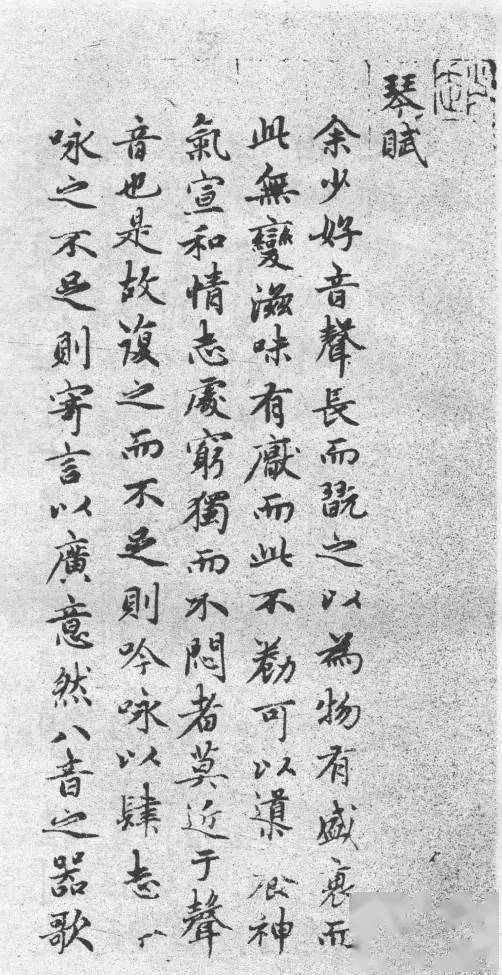 琴賦
余少好音聲長而翫之以為物有盛衰而
此無變滋味有厭而此不勌可以導神
氣宣和情志處窮獨而不悶者莫近于聲
音也是故復之而不足則吟咏以肆志
咏之不足則寄言以廣意然八音之器歌